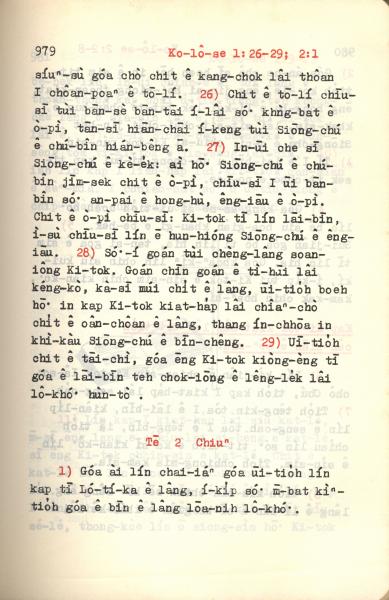 979 Ko-lô-se 1:26-29; 2:1
síuⁿ-sù góa chò chit ê kang-chok lâi thôan
I chôan-poaⁿ ê tō-lí. 26) Chit ê tō-lí chīu-
sī tùi bān-sè bān-tāi í-lâi só͘ khǹg-ba̍t ê
ò-pì, tān-sī hiān-chāi í-keng tùi Siōng-chú
ê chú-bîn hián-bêng à. 27) In-ūi che sī
Siōng-chú ê kè-e̍k: ài hō͘ Siōng-chú ê chú-
bîn jīm-sek chit ê ò-pì, chīu-sī I ūi bān-
bîn só͘ an-pai ê hong-hù, êng-iāu ê ò-pì.
Chit ê ò-pì chīu-sī: Ki-tok tī lín lāi-bīn,
ì-sù chīu-sī lín ē hun-hióng Siōng-chú ê êng-
iau. 28) Só͘-í goán tùi chèng-lâng soan-
iông Ki-tok. Goán chīn goán ê tì-hūi lâi
keng-kò, kà-sī múi chit ê lâng, ūi-tio̍h boeh
hō͘ in kap Ki-tok kiat-ha̍p lâi chiâⁿ-chò
chi̍t ê oân-choân ê lâng, thang ín-chhōa in
khì-kàu Siōng-chú ê bīn-chêng. 29) Uī-tio̍h
chit ê tāi-chì, góa ēng Ki-tok kiōng-èng tī
góa ê lāi-bīn teh chok-iōng ê lêng-le̍k lâi
lô-khó͘ hùn-tò .
Tē 2 Chiuⁿ
1) Góa ài lín chai-iáⁿ góa ūi-tio̍h lín
kap tī Ló-tí-ka ê lâng, í-ki̍p só͘ m̄-bat kìⁿ-
tio̍h góa ê bīn ê lâng lōa-nih lô-khó͘ .